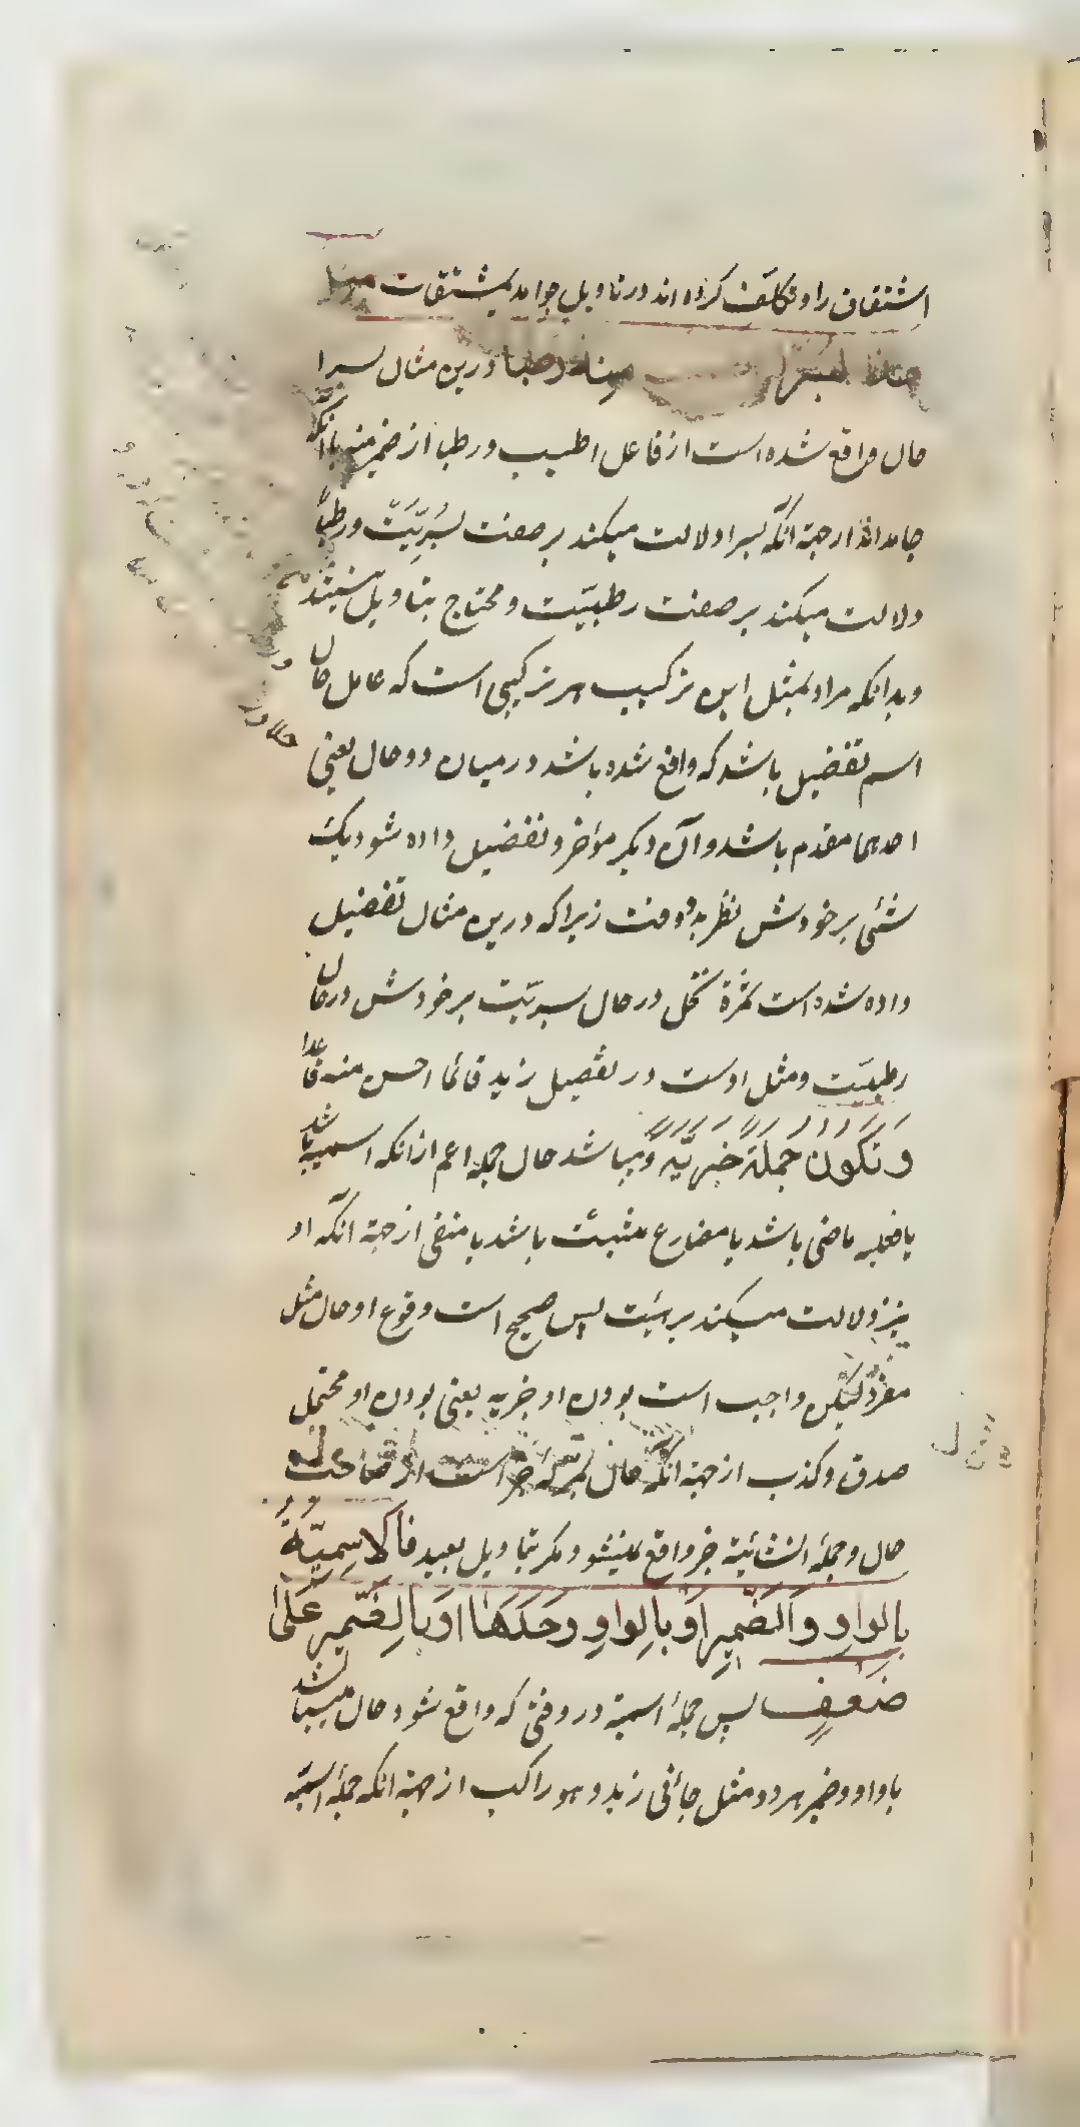 اشتقاق را و تکلف کرده اند در تاویل جوامد بمشتقات مثل
هذا بسرا منه رطبا درین مثال بسرا
حال واقع شده است از فاعل اطیب و رطبا از ضمیر منه باآنکه
جامداند از جهة آنکه بسرا دلالت میکند بر صفت بُسْرِیَّت و رطباً
دلالت میکند بر صفت رطبیّت و محتاج بتاویل نیستند
و بدانکه مراد بمثل این ترکیب هر ترکیبی است که عامل حال
اسم تفضیل باشد که واقع شده باشد در میان دو حال یعنی
احدهما مقدم باشد و آن دیگر مؤخر و تفضیل داده شود یک
شئی بر خودش نظر بدو وقت زیرا که درین مثال تفضیل
داده شده است ثمرة نخل در حال بسریّت بر خودش در حال
رطبیّت و مثل اوست در تفضیل زید قائما احسن منه قاعدا
وَتَكُونُ جُمْلَةً خَبَرِيَّةً و میباشد حال جمله اعم ازانکه اسمیه باشد
یا فعلیه ماضی باشد یا مضارع مثبت باشد یا منفی از جهة آنکه او
نیز دلالت میکند بر هیئت پس صحیح است وقوع او حال مثل
مفرد لیکن واجب است بودن او خبریه یعنی بودن او محتمل
صدق و کذب از جهة آنکه حال بمنزله خبر است از صاحب
حال و جملۀ انشائیة خبر واقع نمیشود مکر بتاویل بعید فَالْاِسْمِيَّةُ
بِالْوَاوِ وَالضَّمِيرِ اَوْ بِالْوَاوِ وَحْدَهَا اَوْ بِالضَّمِيرِ عَلَى
ضَعْفٍ پس جملۀ اسمیة در وقتی که واقع شود حال میباشد
باواو و ضمیر هر دو مثل جائنی زید و هو راکب از جهة انکه جملۀ اسمیّه